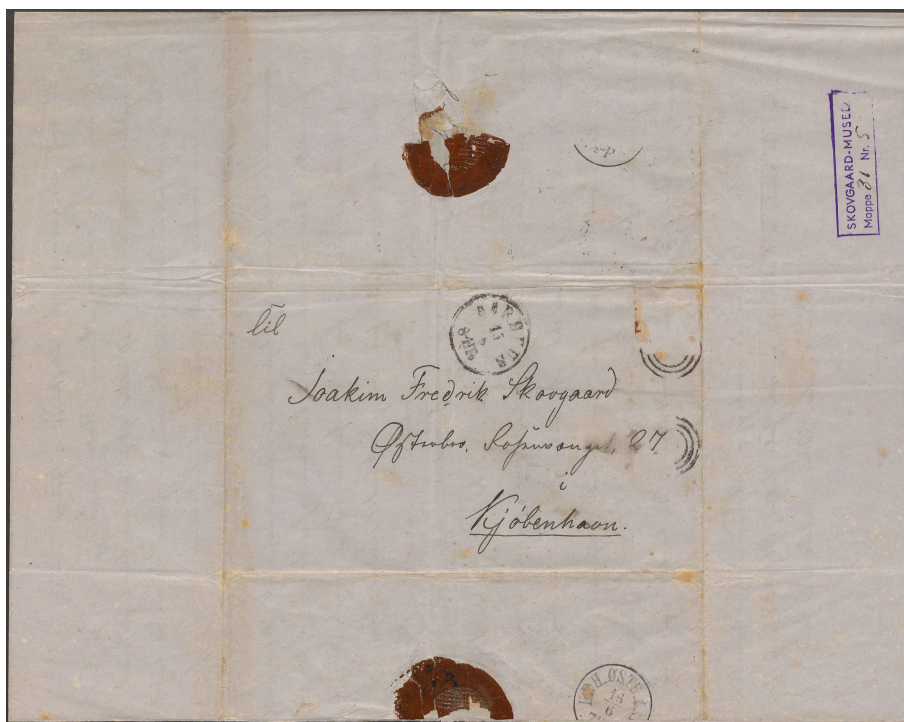 SKOVGAARD-MUSEE
Mappe 81 Nr. 5
til
AARHUUS
15
6
Joakim Fredrik Skovgaard
Østerbro, Rosenvænget, 27
i
Kjøbenhavn.
16
6